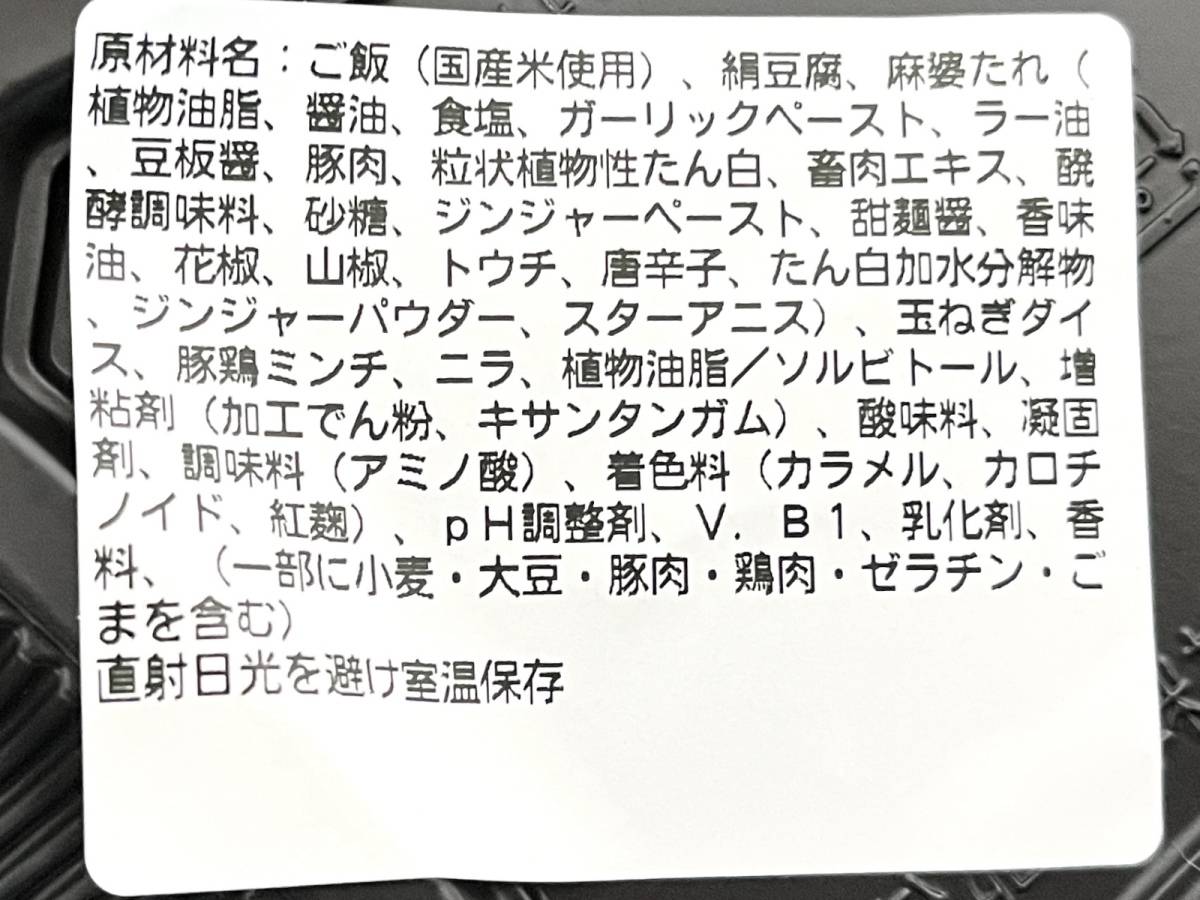 原材料名：ご飯（国産米使用）、絹豆腐、麻婆たれ（
植物油脂、醤油、食塩、ガーリックペースト、ラー油
、豆板醤、豚肉、粒状植物性たん白、畜肉エキス、醗
酵調味料、砂糖、ジンジャーペースト、甜麺醤、香味
油、花椒、山椒、トウチ、唐辛子、たん白加水分解物
、ジンジャーパウダー、スターアニス）、玉ねぎダイ
ス、豚鶏ミンチ、ニラ、植物油脂／ソルビトール、増
粘剤（加工でん粉、キサンタンガム）、酸味料、凝固
剤、調味料（アミノ酸）、着色料（カラメル、カロチ
ノイド、紅麹）、ｐＨ調整剤、Ｖ．Ｂ１、乳化剤、香
料、（一部に小麦・大豆・豚肉・鶏肉・ゼラチン・ご
まを含む）
直射日光を避け室温保存